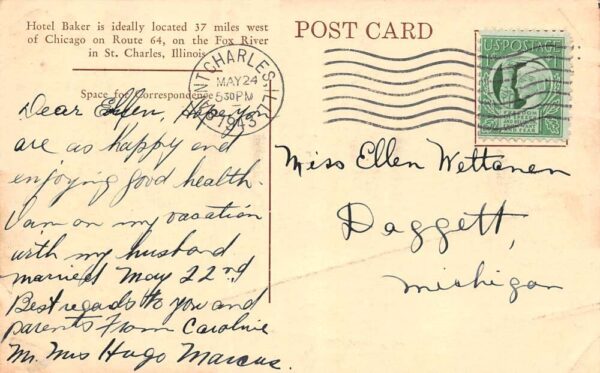 Hotel Baker is ideally located 37 miles west
of Chicago on Route 64, on the Fox River
in St. Charles, Illinois
Space for Correspondence
POST CARD
SAINT CHARLES, ILL.
MAY 24
5 30 PM
1943
U.S. POSTAGE
1¢
Dear Ellen, Hope you
are as happy and
enjoying good health.
I am on my vacation
with my husband
married May 22nd
Best regads to you and
parents From Caroline
Mr. Mrs Hugo Marcus.
Miss Ellen Wettanen
Daggett,
Michigan